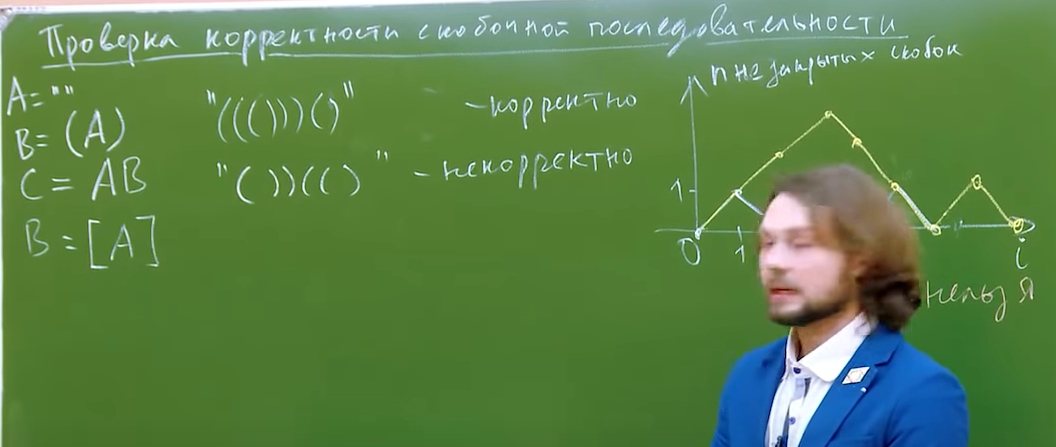 Проверка корректности скобочной последовательности
A = ""
B = (A)
C = AB
B = [A]
"((()))()" - корректно
"( ) ) ( ( )" - некорректно
n незакрытых скобок
1
0 1 i
нельзя